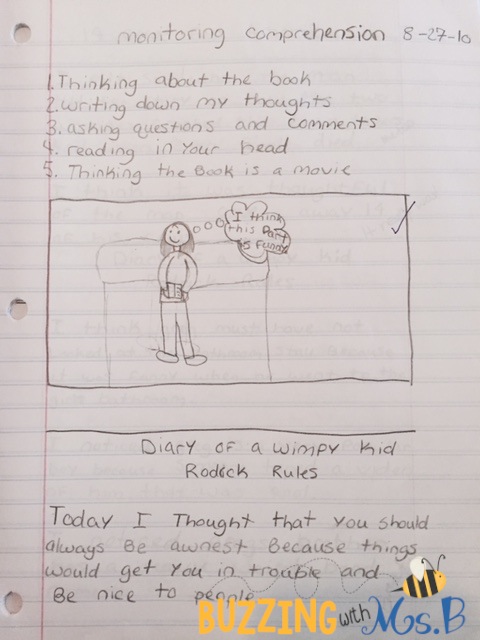 monitoring comprehension 8-27-10
1. Thinking about the book
2. writing down my thoughts
3. asking questions and comments
4. reading in your head
5. Thinking the Book is a movie
I think
this Part
is Funny
Diary of a wimpy kid
Rodrick Rules
Today I Thought that you should
always Be awnest Because things
would get you in trouble and
Be nice to people
BUZZING with Ms. B